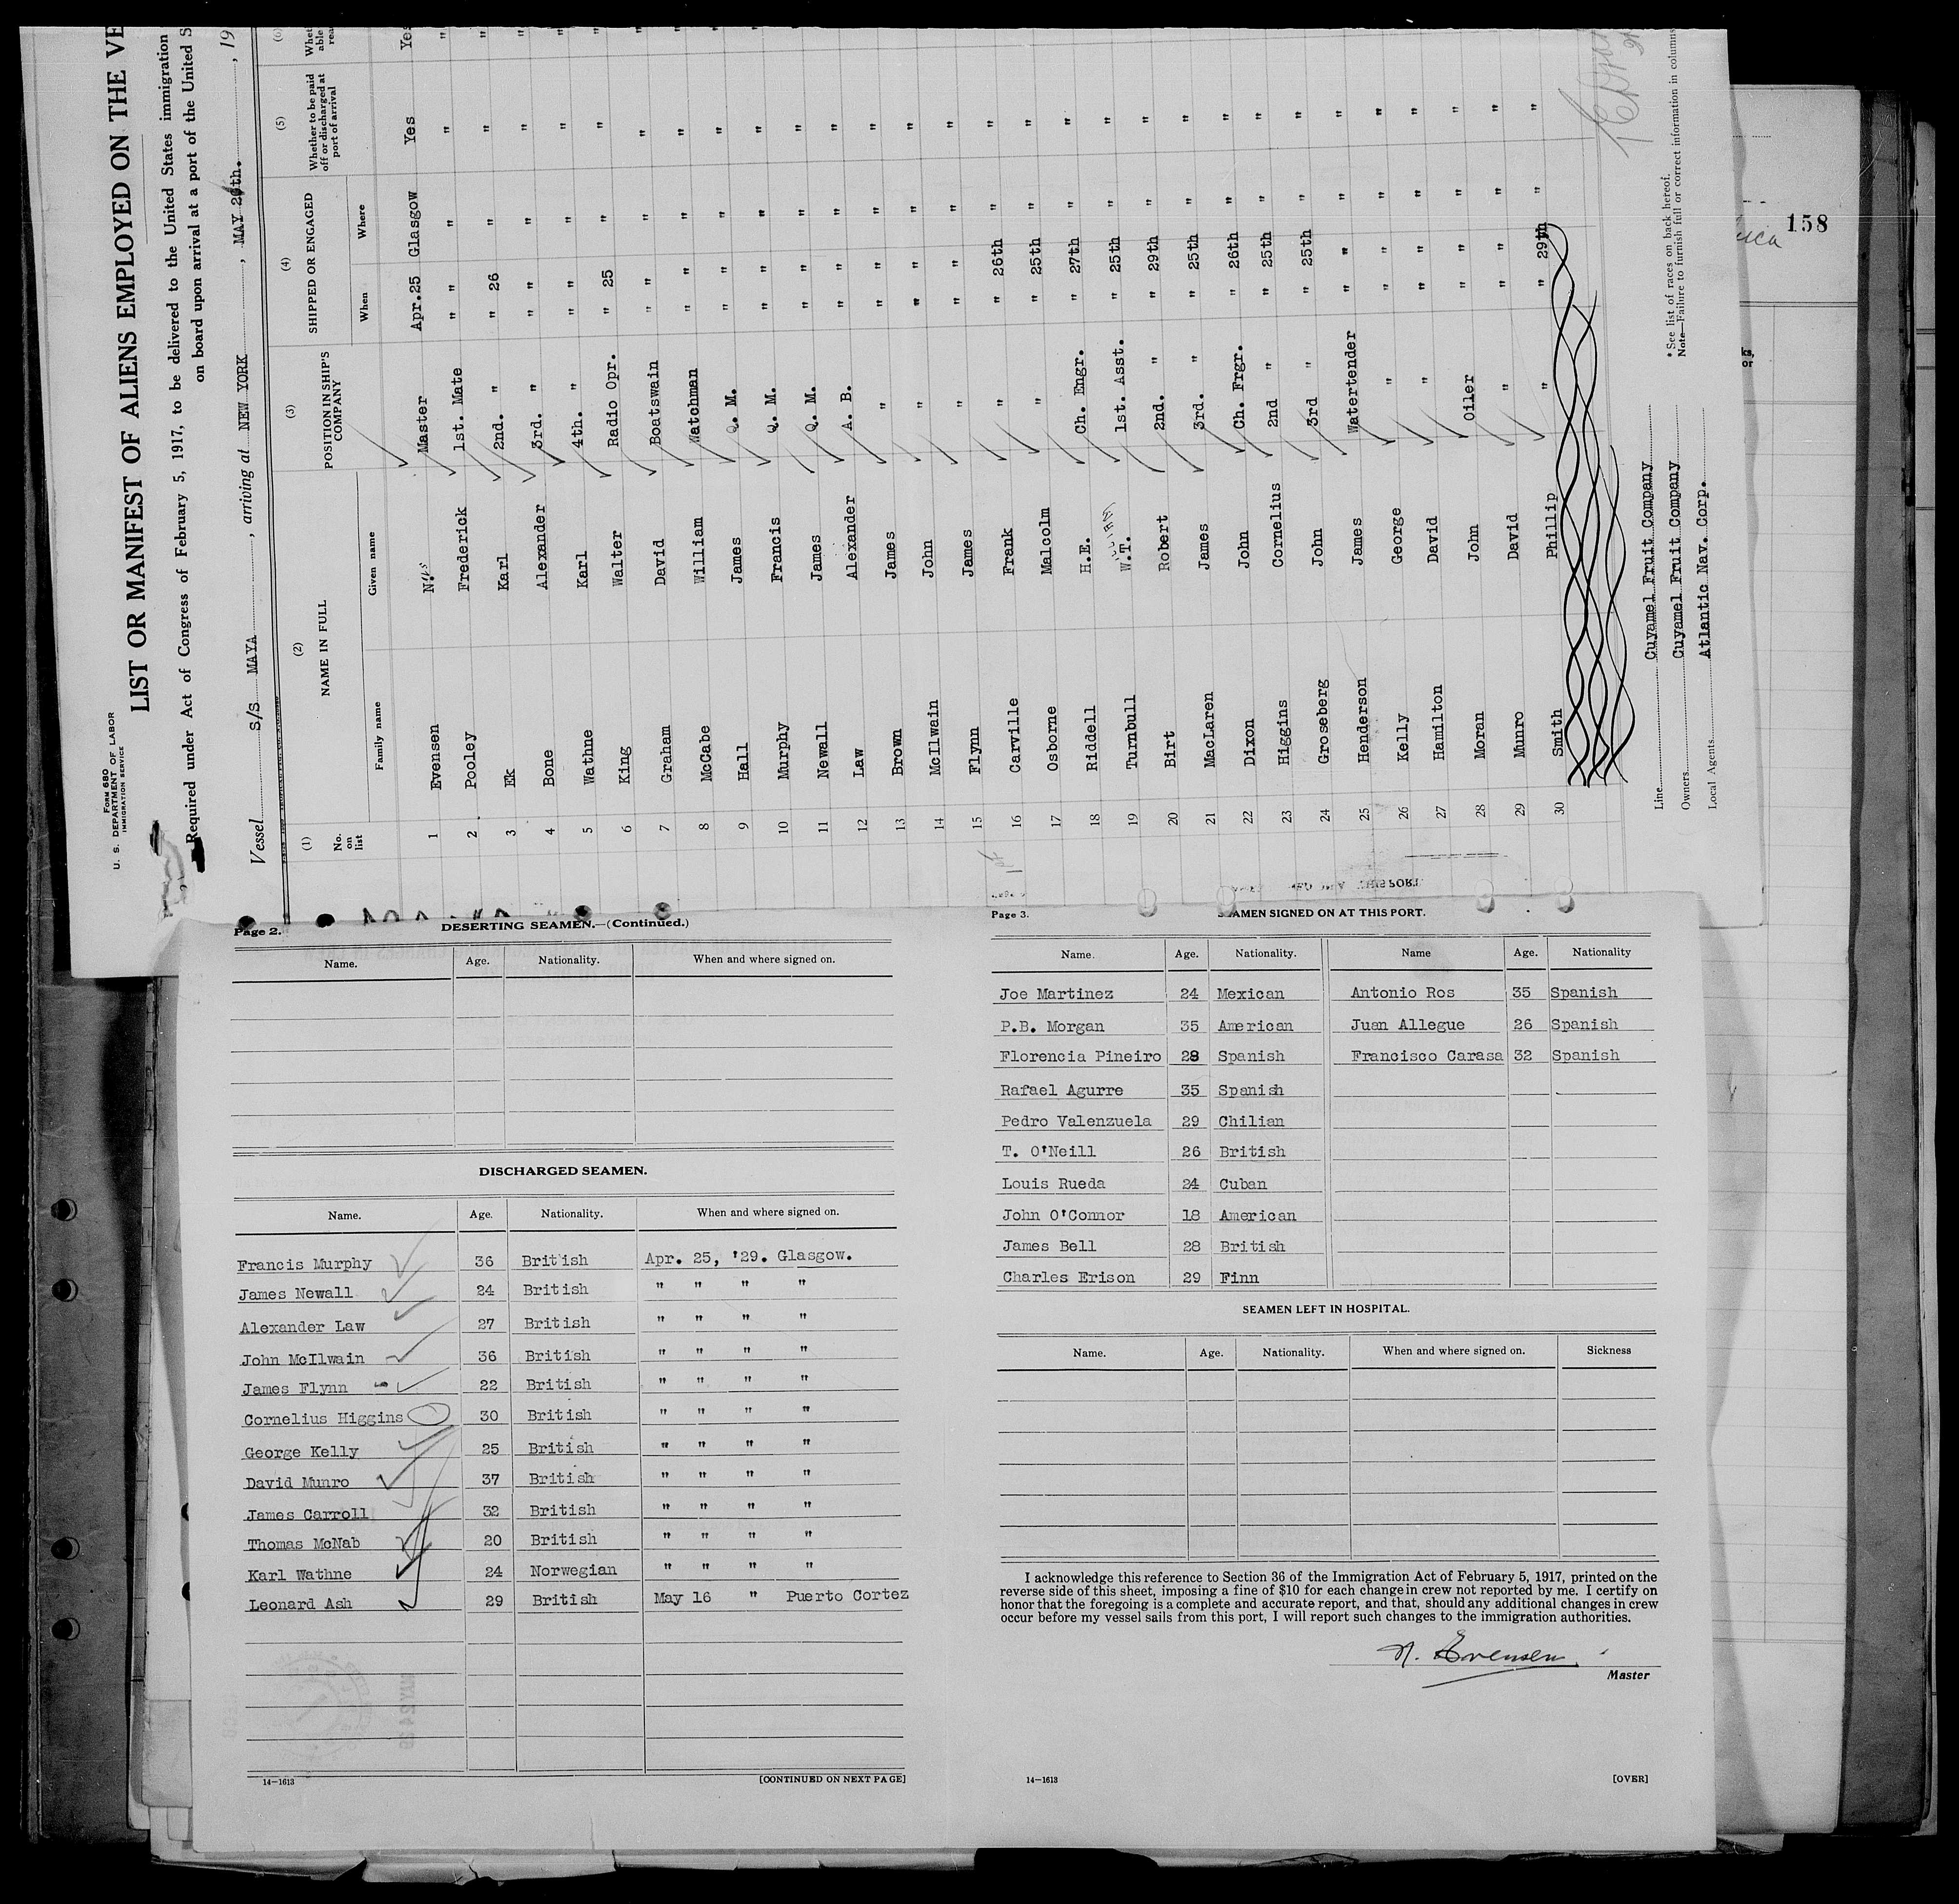 FORM 680
U. S. DEPARTMENT OF LABOR
IMMIGRATION SERVICE
LIST OR MANIFEST OF ALIENS EMPLOYED ON THE VE
Required under Act of Congress of February 5, 1917, to be delivered to the United States immigration
on board upon arrival at a port of the United S
Vessel S/S MAYA, arriving at NEW YORK, MAY 24th., 19
(1) (2) (3) (4) (5) (6)
No. on list NAME IN FULL POSITION IN SHIP'S COMPANY SHIPPED OR ENGAGED Whether to be paid off or discharged at port of arrival
Family name Given name When Where
1 Evensen N. Master Apr.25 Glasgow Yes Yes
2 Pooley Frederick 1st. Mate " " " " "
3 Ek Karl 2nd. " " 26 " " "
4 Bone Alexander 3rd. " " " " " "
5 Wathne Karl 4th. " " " " " "
6 King Walter Radio Opr. " 25 " " "
7 Graham David Boatswain " " " " "
8 McCabe William Watchman " " " " "
9 Hall James Q. M. " " " " "
10 Murphy Francis Q. M. " " " " "
11 Newall James Q. M. " " " " "
12 Law Alexander A. B. " " " " "
13 Brown James " " " " " "
14 McIlwain John " " " " " "
15 Flynn James " " " " " "
16 Carville Frank " " 26th " " "
17 Osborne Malcolm " " 25th " " "
18 Riddell H.E. Ch. Engr. " 27th " " "
19 Turnbull W.T. William 1st. Asst. " 25th " " "
20 Birt Robert 2nd. " " 29th " " "
21 MacLaren James 3rd. " " 25th " " "
22 Dixon John Ch. Frgr. " 26th " " "
23 Higgins Cornelius 2nd " " 25th " " "
24 Groseberg John 3rd " " 25th " " "
25 Henderson James Watertender " " " " "
26 Kelly George " " " " " "
27 Hamilton David " " " " " "
28 Moran John Oiler " " " " "
29 Munro David " " " " " "
30 Smith Phillip " " 29th " "
Line Cuyamel Fruit Company
Owners Cuyamel Fruit Company
Local Agents Atlantic Nav. Corp.
* See list of races on back hereof.
Note—Failure to furnish full or correct information in columns
158
Page 2.
DESERTING SEAMEN.—(Continued.)
Name. Age. Nationality. When and where signed on.
DISCHARGED SEAMEN.
Name. Age. Nationality. When and where signed on.
Francis Murphy 36 British Apr. 25, '29. Glasgow.
James Newall 24 British " " " "
Alexander Law 27 British " " " "
John McIlwain 36 British " " " "
James Flynn 22 British " " " "
Cornelius Higgins 30 British " " " "
George Kelly 25 British " " " "
David Munro 37 British " " " "
James Carroll 32 British " " " "
Thomas McNab 20 British " " " "
Karl Wathne 24 Norwegian " " " "
Leonard Ash 29 British May 16 " Puerto Cortez
14—1613 [CONTINUED ON NEXT PAGE]
Page 3.
SEAMEN SIGNED ON AT THIS PORT.
Name. Age. Nationality. Name Age. Nationality
Joe Martinez 24 Mexican Antonio Ros 35 Spanish
P.B. Morgan 35 American Juan Allegue 26 Spanish
Florencia Pineiro 28 Spanish Francisco Carasa 32 Spanish
Rafael Agurre 35 Spanish
Pedro Valenzuela 29 Chilian
T. O'Neill 26 British
Louis Rueda 24 Cuban
John O'Connor 18 American
James Bell 28 British
Charles Erison 29 Finn
SEAMEN LEFT IN HOSPITAL.
Name. Age. Nationality. When and where signed on. Sickness
I acknowledge this reference to Section 36 of the Immigration Act of February 5, 1917, printed on the
reverse side of this sheet, imposing a fine of $10 for each change in crew not reported by me. I certify on
honor that the foregoing is a complete and accurate report, and that, should any additional changes in crew
occur before my vessel sails from this port, I will report such changes to the immigration authorities.
N. Evensen
Master
14—1613 [OVER]